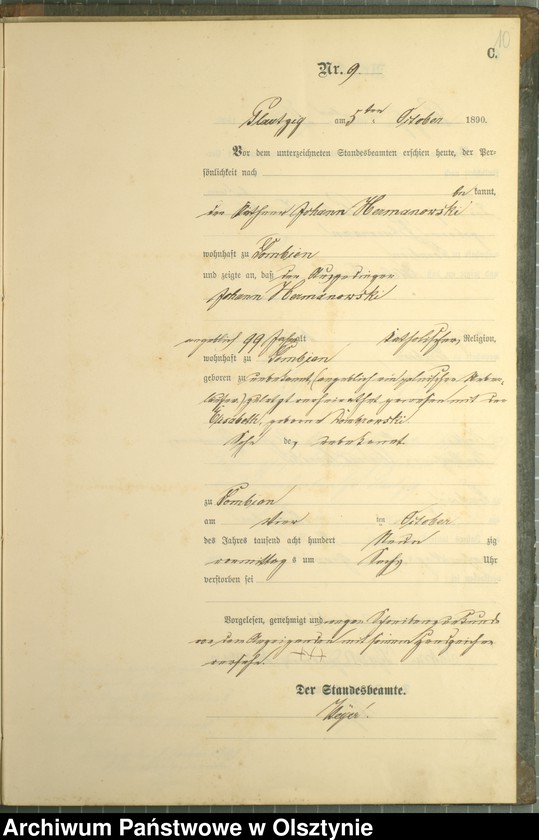 10
C.
Nr. 9.
Plautzig am 5ten October 1890.
Vor dem unterzeichneten Standesbeamten erschien heute, der Per-
sönlichkeit nach
be kannt,
der Johann Hermanowski
wohnhaft zu Dombien
und zeigte an, daß der Auszedinger
Johann Hermanowski
angeblich 99 Jahre alt katholischer Religion,
wohnhaft zu Dombien
geboren zu unbekannt (angeblich ein polnischer Ueber-
läufer) zuletzt verheirathet gewesen mit der
Elisabeth, geborne
Sohn de unbekannt.
zu Dombien
am vier ten October
des Jahres tausend acht hundert Neun zig
vormittag s um Sechs Uhr
verstorben sei
Vorgelesen, genehmigt und wegen Schreibensunkunde
von dem Anzeigenden mit seinem Handzeichen
versehn. +++
Der Standesbeamte.
Archiwum Państwowe w Olsztynie